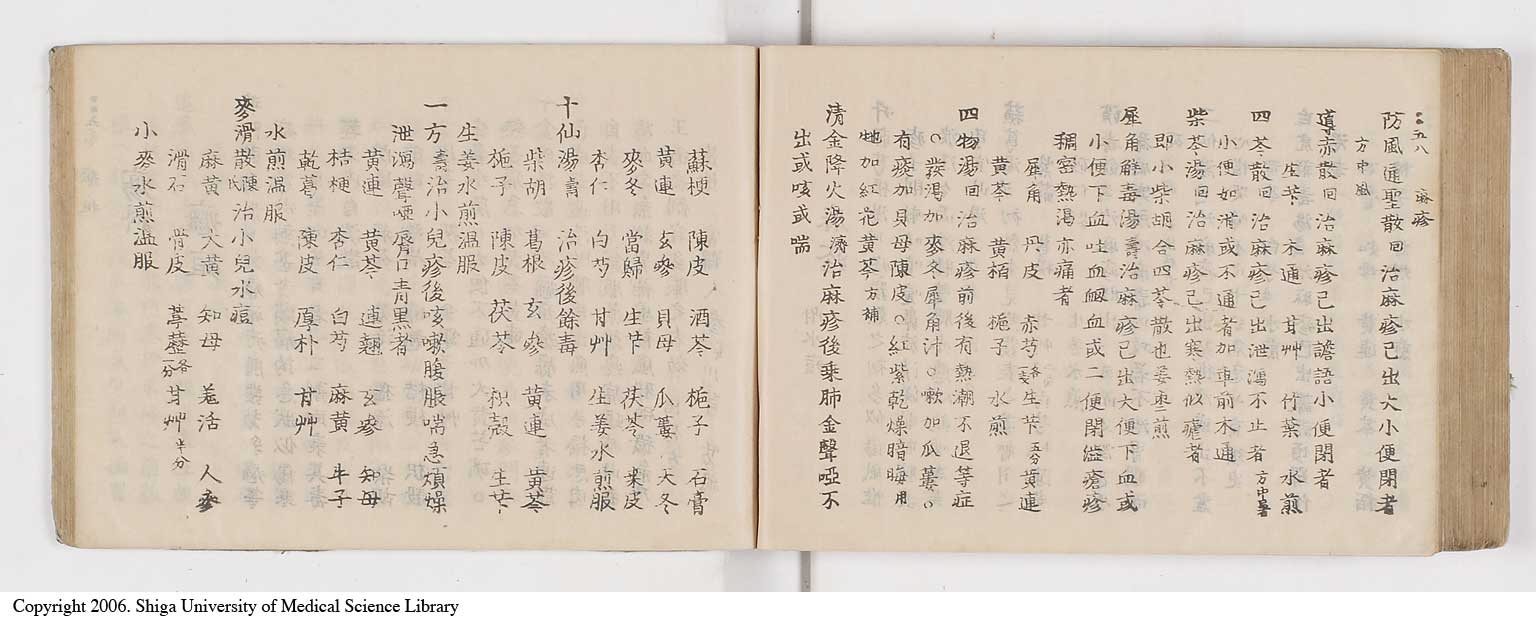 五八 麻疹
防風通聖散回 治麻疹已出大小便閉者
方中風
導赤散回治麻疹已出譫語小便閉者
生芐 木通 甘艸 竹葉 水煎
四苓散回治麻疹已出泄瀉不止者方中暑
小便如淋或不通者加車前木通
柴苓湯回治麻疹已出寒熱似瘧者
即小柴胡合四苓散也姜枣煎
犀角觧毒湯壽治麻疹已出大便下血或
小便下血吐血衂血或二便閉
稠密熱渇亦痛者
犀角 丹皮 赤芍各 生芐五分 黄連
黄芩 黄栢 梔子 水煎
四物湯回治麻疹前後有熱潮不退等症
○渇加麥冬犀角汁○嗽加瓜蔞○
有痰加貝母陳皮○紅紫乾燥暗晦用
地加紅花黄芩方補
清金降火湯濟治麻疹後乗肺金聲啞不
出或咳或喘
蘇梗 陳皮 酒芩 梔子 石膏
黄連 玄參 貝母 瓜蔞 天冬
麥冬 當歸 生芐 茯苓 桒皮
杏仁 白芍 甘艸 生姜水煎服
十仙湯壽 治疹後餘毒
柴胡 葛根 玄參 黄連 黄芩
梔子 陳皮 茯苓 枳殻 生芐
生姜水煎温服
一方壽治小兒疹後咳嗽腹脹喘急煩燥
泄瀉聲唖唇口青黒者
黄連 黄芩 連翹 玄參 知母
桔梗 杏仁 白芍 麻黄 牛子
乾葛 陳皮 厚朴 甘艸
水煎温服
麥滑散陳氏治小兒水痘
麻黄 大黄 知母 羗活 人參
滑石 骨皮 葶藶各一分 甘艸半分
小麥水煎溫服